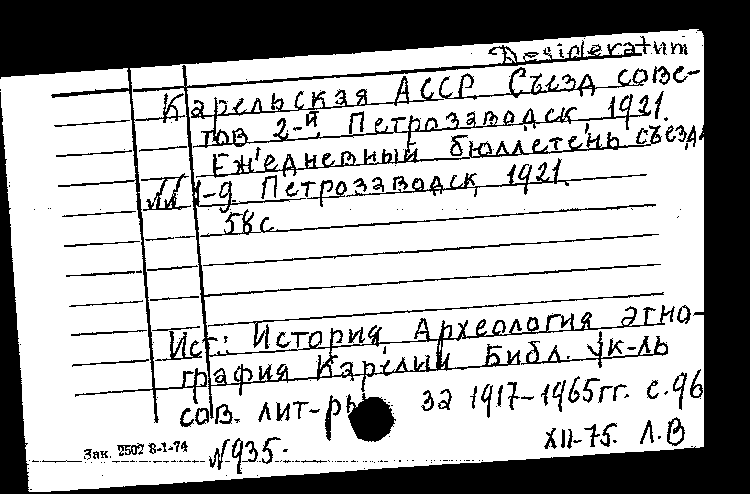 Desideratum
Карельская АССР. Съезд сове-
тов 2-й. Петрозаводск, 1921.
Ежедневный бюллетень съезда
№№ 1-9. Петрозаводск, 1921.
58 с
Ист.: История, Археология, этно-
графия Карелии Библ. ук-ль
сов. лит-ры за 1917-1965гг. с.96
Зак. 2502 8-1-74 №935. XII-75. Л.В